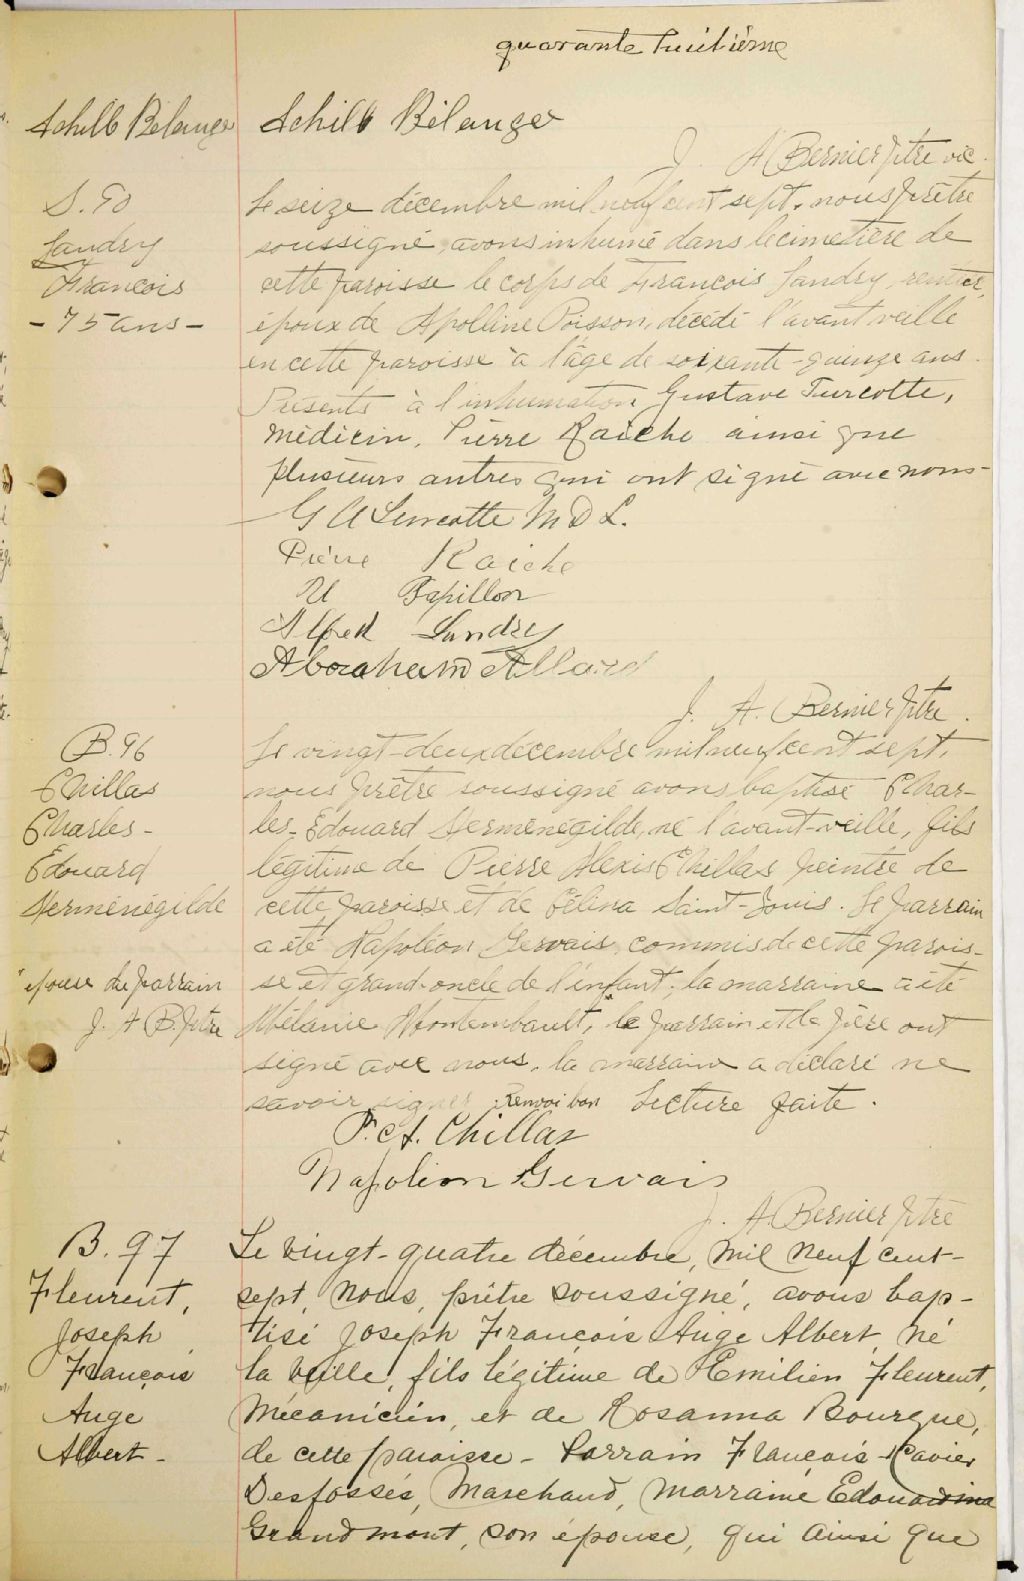 quarante huitième
Achille Bélanger
Achille Bélanger
J. A Bernier ptre vic.
S. 90
Landry
François
- 75 ans -
Le seize décembre mil neuf cent sept, nous prêtre
soussigné, avons inhumé dans le cimetière de
cette paroisse le corps de François Landry, rentier,
époux de Apolline Poisson, décédé l'avant veille
en cette paroisse à l'âge de soixante-quinze ans.
Présents à l'inhumation Gustave Turcotte,
médecin, Pierre Raiche ainsi que
plusieurs autres qui ont signé avec nous-
G A Turcotte M D L.
Pierre Raiche
Papillon
Alfred Landry
Abraham Allard
J. A. Bernier ptre.
B. 96
Chillas
Charles-
Edouard
Herménégilde
Le vingt-deux décembre mil neuf cent sept,
nous prêtre soussigné avons baptisé Char-
les-Edouard Herménégilde, né l'avant-veille, fils
légitime de Pierre Alexis Chillas peintre de
cette paroisse et de Célina Saint-Louis. Le parrain
a été Napoléon Gervais, commis de cette parois-
se et grand-oncle de l'enfant; la marraine a été
Mélanie Montembault, le parrain et le père ont
signé avec nous, la marraine a déclaré ne
savoir signer. Renvoi bon Lecture faite.
épouse du parrain
J. A B. ptre
P. A. Chillas
Napoléon Gervais
J. A Bernier ptre
B. 97
Fleurent,
Joseph
François
Auge
Albert -
Le vingt-quatre décembre, mil neuf cent-
sept, nous, prêtre soussigné, avons bap-
tisé Joseph François Auge Albert, né
la veille, fils légitime de Emilien Fleurent,
mécanicien, et de Rosanna Bourque,
de cette paroisse - Parrain François-Xavier
Desfossés, Marchand, Marraine Edouardina
Grandmont, son épouse, qui ainsi que